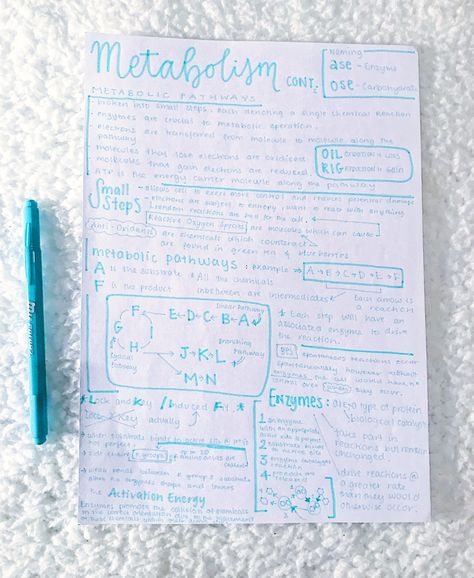 Metabolism CONT:
Naming
ase - Enzyme
ose - Carbohydrate
METABOLIC PATHWAYS
broken into small steps. Each denoting a single chemical reaction
enzymes are crucial to metabolic operation.
electrons are transferred from molecule to molecule along the
pathway
molecules that lose electrons are oxidised
molecules that gain electrons are reduced
ATP is the energy carrier molecule along the pathway
OIL Oxidation is Loss
RIG Reduction is Gain
Small Steps
allows cell to exert more control and reduces potential damage
electrons are subject to entropy, want to react with anything
random reactions are bad for the cell.
Reactive Oxygen Species are molecules which can cause
Anti-Oxidants are chemicals which counteract
are found in green tea & blueberries
metabolic pathways : Example
A is the substrate & All the chemicals
F is the product inbetween are intermediates
A→B→C→D→E→F
Each arrow is
a reaction
* Each step will have an
associated enzyme to drive
the reaction.
Linear Pathway
F E←D←C←B←A
G
H
Cyclical Pathway
Branching Pathway
J→K→L
M→N
spontaneous reactions occur
spontaneously however without
enzymes
Lock and Key / Induced Fit
Lock & Key actually
when substrate binds to active site
side chains R groups
amino acids are
weak bonds between R group & substrate
Activation Energy
Enzymes promote the collision of chemicals
in the correct orientation
Enzymes:
are a type of protein
biological catalyst
take part
in reactions but remain
unchanged
drive reactions @
a greater rate
than they would
otherwise occur.
1 an enzyme
with an appropriate
active site is present
2 substrate binds
to active site
3 enzyme catalyses
reaction
4 products are
released